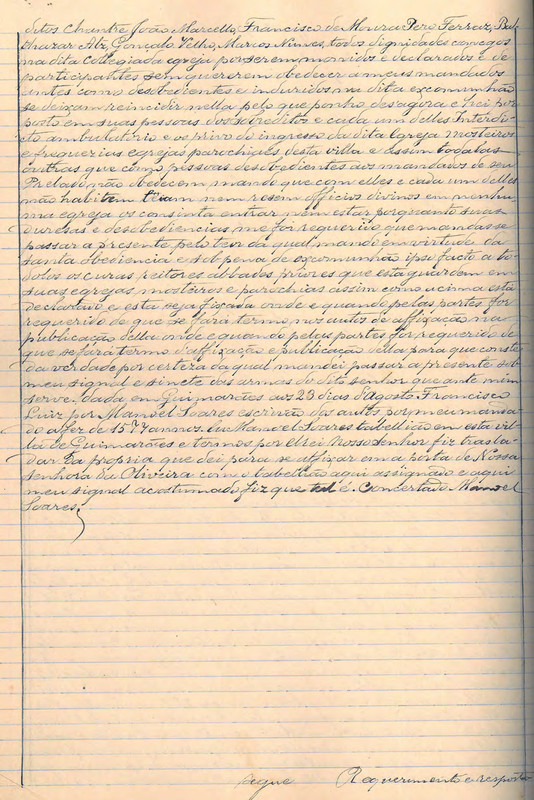 ditos Chantre João Marcello, Francisco de Moura Pero Ferraz, Bal-
thazar Alz, Gonçalo Velho, Marcos Nunes, todos dignidades conegos
na dita Collegiada egreja por serem, monidos e declarados e de
participantes sem quererem obedecer a meus mandados
antes como desobedientes e induridos na dita excommunhão
se deixam reincidir nella pelo que ponho, desagora e hei por
posto em suas pessoas dos sobreditos e cada um delles Interdi-
cto ambulatorio e os privo do ingresso da dita Egreja mosteiros
e freguezias egrejas parochiaes, desta villa e assim todalas
outras que como pessoas desobedientes aos mandados de seu
Prelado não obedecem, mando que com elles e cada um delles
não habitem nem resem officios divinos em nenhu-
ma egreja os consinta entrar nem estar, porquanto suas
duresas e desobediencias me foi requerido que mandasse
passar a presente pelo teor da qual mando em virtude da
santa obediencia e sob pena de excommunhão ipso facto a to-
dolos os curas, reitores abbades, priores que esta guardem em
suas egrejas, mosteiros e parochias assim como acima está
declarado e esta seja fixada onde e quando pelas partes for
requerido de que se fará termo nos autos de affixação na
publicação della onde e quando pelas partes for requerido de
que se fará termo d'affixação e publicação della para que conste
da verdade por certeza da qual mandei passar a presente sob
meu signal e sinete das armas do dito senhor que ante mim
serve. dada, em Guimarães aos 23 dias d'Agosto. Francisco
Luiz por Manoel Soares escrivão dos autos, por meu manda-
do a fez de 1577 annos. Eu Manoel Soares tabellião em esta vil-
la de Guimarães e termos por elRei Nosso Senhor fiz trasla-
dar da propria que dei para se affixar em a porta de Nossa
Senhora da Oliveira com o tabellião aqui assignado e aqui
meu signal acostumado fiz que tal é. Concertado Manoel
Soares
segue Requerimento e resposta